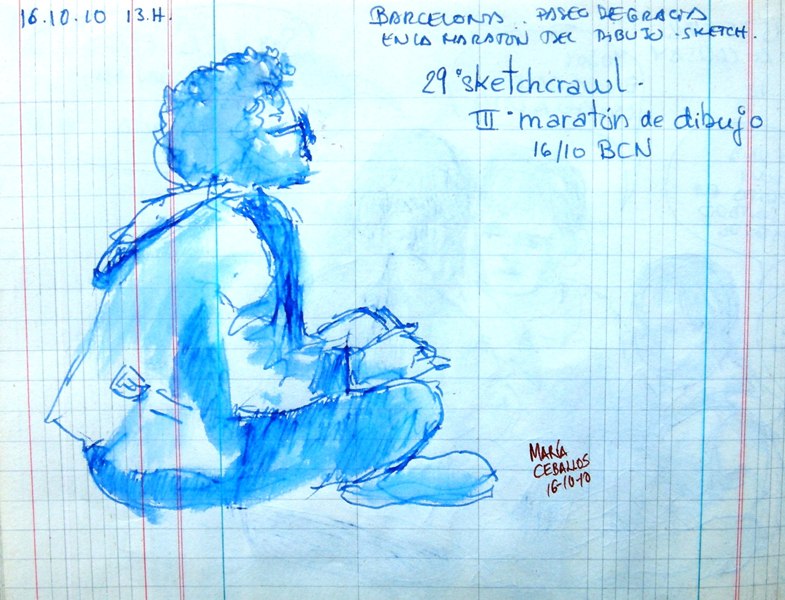 16.10.10 13.H.
BARCELONA . PASEO DE GRACIA
EN LA MARATÓN DEL DIBUJO . SKETCH.
29° sketchcrawl.
III · maratón de dibujo
16/10 BCN
MARÍA
CEBALLOS
16-10-10